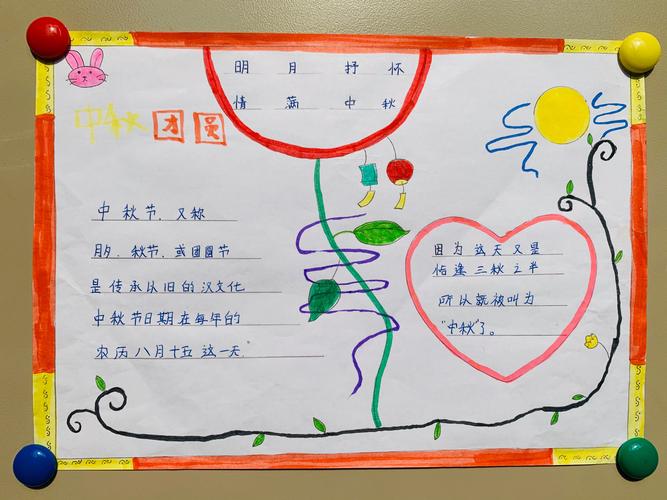 明月抒怀
情满中秋
中秋团圆
中秋节，又称
月夕、秋节、或团圆节
是传承从旧的汉文化
中秋节日期在每年的
农历八月十五这一天
因为这天又是
恰逢三秋之半
所以就被叫为
"中秋"了。